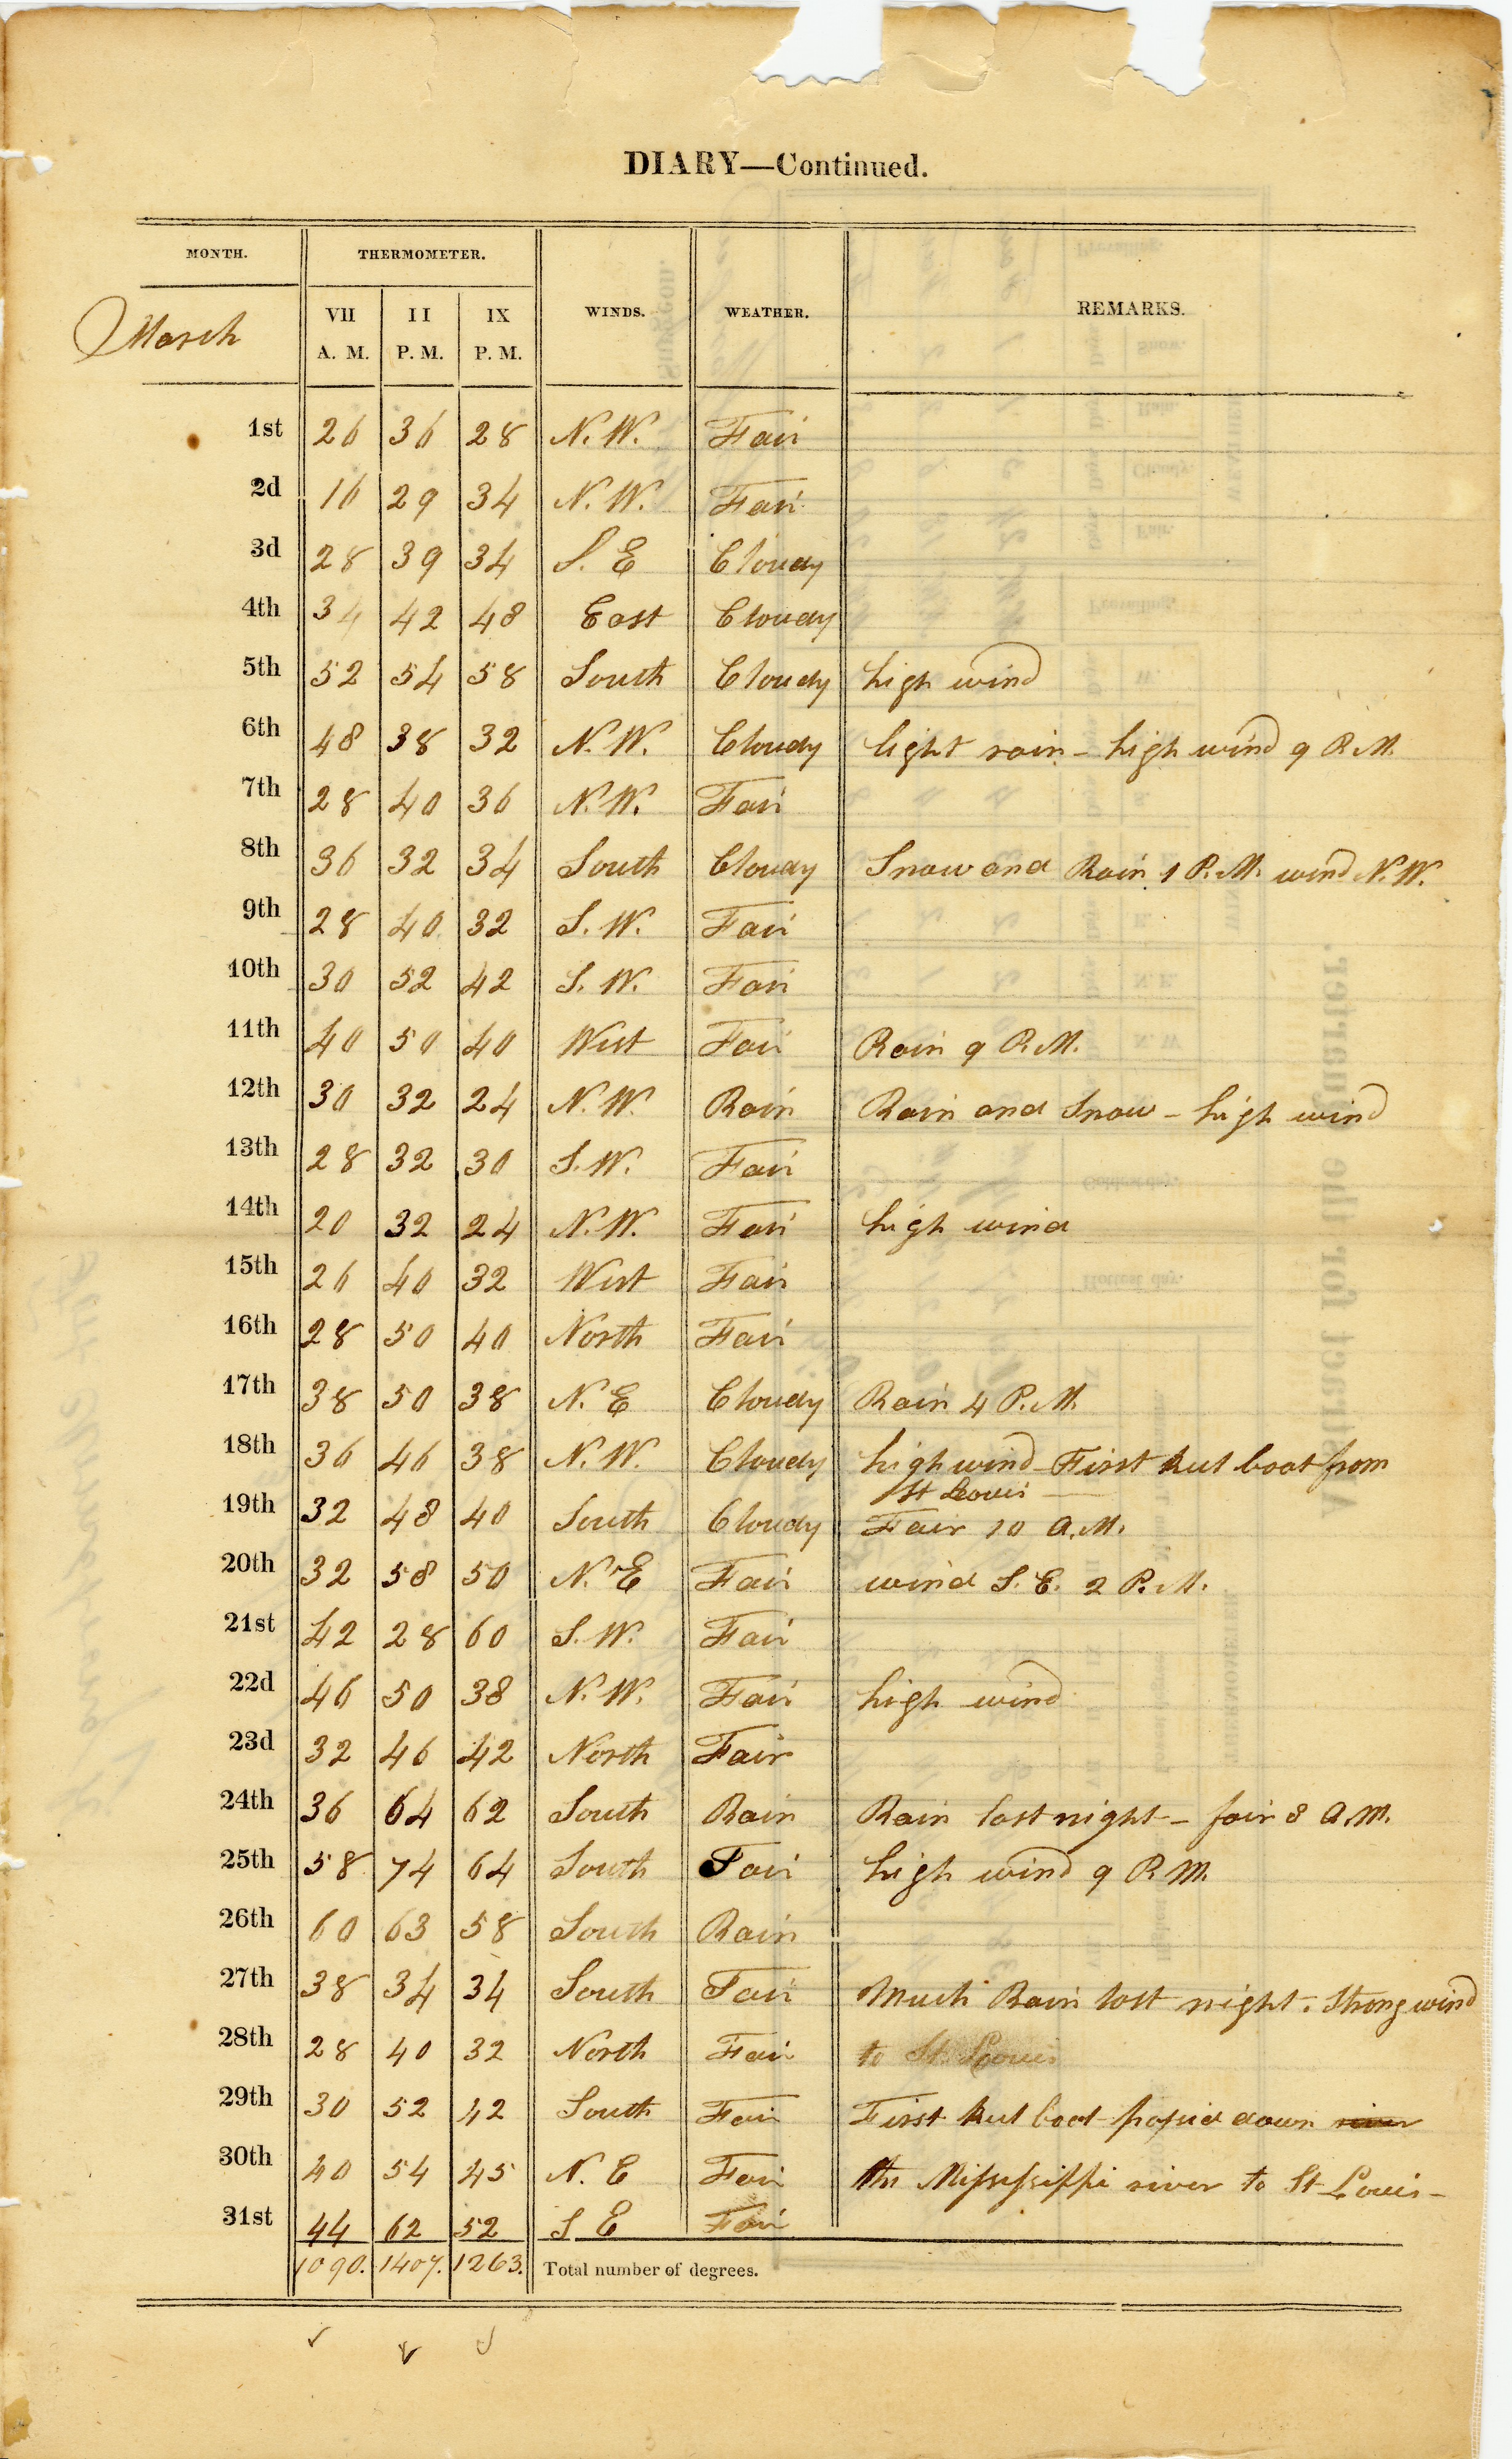 DIARY—Continued.
MONTH. THERMOMETER. WINDS. WEATHER. REMARKS.
March VII A. M. II P. M. IX P. M.
1st 26 36 28 N. W. Fair
2d 16 29 34 N. W. Fair
3d 28 39 34 S. E Cloudy
4th 34 42 48 East Cloudy
5th 52 54 58 South Cloudy high wind
6th 48 38 32 N. W. Cloudy light rain – high wind 9 P. M.
7th 28 40 36 N. W. Fair
8th 36 32 34 South Cloudy Snow and Rain 1 P. M. wind N. W.
9th 28 40 32 S. W. Fair
10th 30 52 42 S. W. Fair
11th 40 50 40 West Fair Rain 9 P. M.
12th 30 32 24 N. W. Rain Rain and Snow – high wind
13th 28 32 30 S. W. Fair
14th 20 32 24 N. W. Fair high wind
15th 26 40 32 West Fair
16th 28 50 40 North Fair
17th 38 50 38 N. E Cloudy Rain 4 P. M.
18th 36 46 38 N. W. Cloudy high wind – First keel boat from
St Louis —
19th 32 48 40 South Cloudy Fair 10 A. M.
20th 32 58 50 N. E Fair wind S. E. 2 P. M.
21st 42 28 60 S. W. Fair
22d 46 50 38 N. W. Fair high wind
23d 32 46 42 North Fair
24th 36 64 62 South Rain Rain last night – fair 8 A. M.
25th 58 74 64 South Fair high wind 9 P. M.
26th 60 63 58 South Rain
27th 38 34 34 South Fair Much Rain last night. Strong wind
28th 28 40 32 North Fair to St. Louis
29th 30 52 42 South Fair First keel boat passed down river
30th 40 54 45 N. E Fair the Mississippi river to St Louis –
31st 44 62 52 S E Fair
1090. 1407. 1263. Total number of degrees.